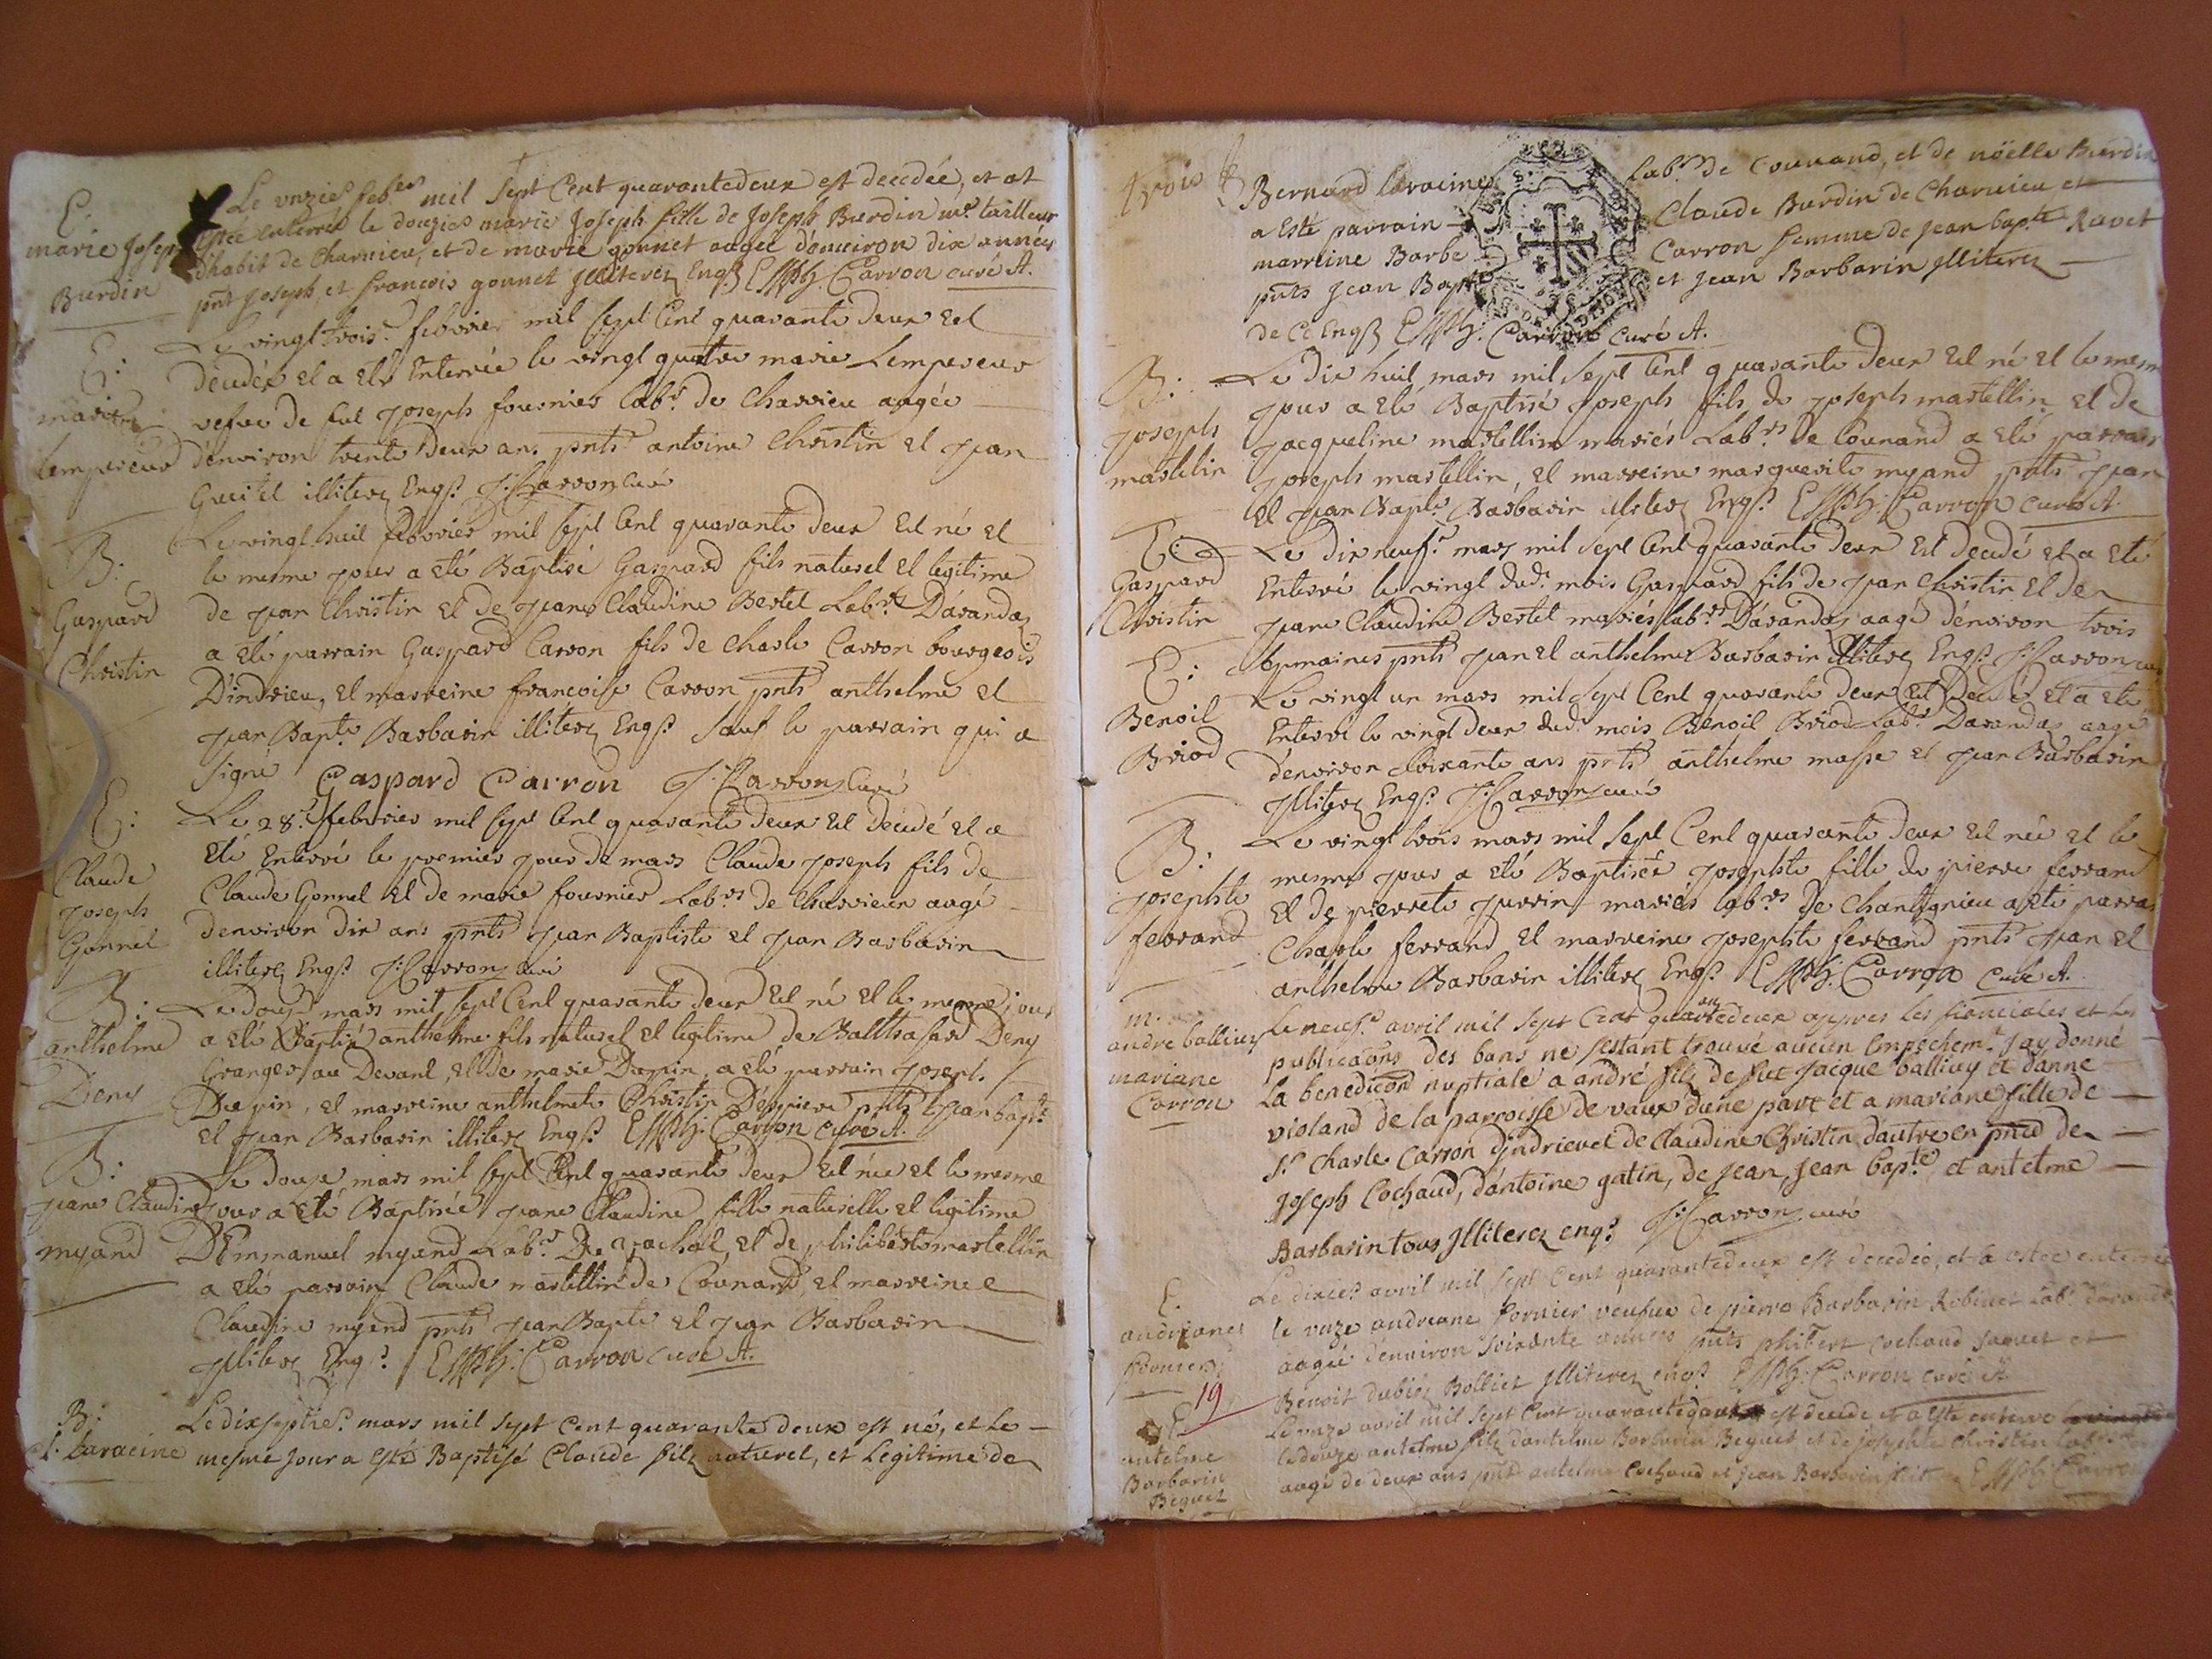 E.
marie Joseph
Burdin
Le unzie feber mil sept Cent quarantedeux est decedée, et at
estée enterrée le douzie marie Joseph fille de Joseph Burdin me tailleur
d'habit de Charuieu, et de marie gonnet aagée d'enuiron dix années
pnt Joseph et francois gonnet Jlliterez Enqs Carron curé A.
E:
marie
Lempereur
Le vingt trois febvrier mil sept Cent quarante deux est
décédée et a eté Enterrée le vingt quatre marie Lempereur
vefve de fut joseph fournier labr de Charvieu aagée
d'environ trente deux ans pnts antoine Christin et jean
illiterez Enqs J: Carron curé
B:
Gaspard
Christin
Le vingt huit febvrier mil sept Cent quarante deux est né et
le mesme jour a eté Baptisé Gaspard fils naturel et legitime
de jean Christin et de jeane Claudine Bertet Labrs D'avandaz
a eté parrain Gaspard Carron fils de Charle Carron bourgeois
D'indrieu, et marreine francoise Carron pnts anthelme et
jean Bapte Barbarin illiterez Enqs sauf le parrain qui a
signe Gaspard Carron J: Carron curé
E:
Claude
joseph
Gonnet
Le 28e febvrier mil sept Cent quarante deux est décédé et a
eté Enterré le premier jour de mars Claude joseph fils de
Claude Gonnet et de marie fournier Labrs de Charvieux aagé
d'environ dix ans pnts jean Baptiste et jean Barbarin
illiterez Enqs J: Carron curé
B:
anthelme
Deny
Le douze mars mil sept Cent quarante deux est né et le mesme jour
a eté Baptisé anthelme fils naturel et legitime de Balthasard Deny
Granger au Devant, et de marie Drepin, a eté parrain joseph
Drepin, et marreine anthelmete Christin pnts jean bapte
et jean Barbarin illiterez Enqs Carron curé A.
B:
jeane Claudine
myand
Le douze mars mil sept Cent quarante deux est née et le mesme
jour a eté Baptisée jeane Claudine fille naturelle et legitime
D'Emmanuel myand Labr et de philiberte martellin
a eté parrain Claude martellin de Counand, et marreine
Claudine myand pnts jean Bapte et jean Barbarin
jlliterez Enqs Carron curé A.
B:
C. Caracine
Le dixseptie mars mil sept cent quarante deux est né, et le
mesme jour a esté Baptisé Claude filz naturel, et Legitime de
trois
Bernard Caracine labr de Counand, et de nöelle Burdin
a este parrain Claude Burdin de Charuieu et
marreine Barbe Carron femme de jean bapte Ravet
pnts jean Bapte et Jean Barbarin Jlliterez
de Ce Enqs Carron curé A.
B:
joseph
martelin
Le dix huit mars mil sept Cent quarante deux est né et le mesme
jour a eté Baptisé joseph fils de joseph martellin et de
jacqueline martellin mariés Labrs de Counand a eté parrain
joseph martellin, et marreine marguerite myand pnts jean
et jean Bapte Barbarin illiterez Enqs Carron curé A
E:
Gaspard
Christin
Le dix neuf mars mil sept Cent quarante deux est decedé et a eté
Enterré le vingt dud. mois Gaspard fils de jean Christin et de
jeane Claudine Bertet mariés labrs D'avandaz aagé d'environ trois
semaines pnts jean et anthelme Barbarin illiterez Enqs J: Carron curé
E:
Benoit
Briod
Le vingt un mars mil sept Cent quarante deux est decedé et a eté
Enterré le vingt deux dud. mois Benoit Briod Labr Davandaz aagé
d'environ soixante ans pnts anthelme masse et jean Barbarin
jlliterez Enqs J: Carron curé
B:
josephte
ferrand
Le vingt trois mars mil sept Cent quarante deux est née et le
mesme jour a eté Baptisée josephte fille de pierre ferrand
et de pierrete mariés labrs de Chantignieu a eté parrain
Charle ferrand et marreine josephte ferrand pnts jean et
anthelme Barbarin illiterez Enqs Carron curé A.
m.
andre balliuy
mariane
Carron
Le neuf avril mil sept Cent quarantedeux appres les fianciales et les
publicaõns des bans ne s'estant trouvé aucun empechem. J'ay donné
La benedicõn nuptiale a andré filz de fut Jacque balliuy et d'anne
violand de la parroisse de vaux dune part et a mariane fille de
Sr Charle Carron d'jndrieu et de Claudine Christin dautre en pnce de
joseph Cochaud, d'antoine gatin, de jean, jean bapte et antelme
Barbarin tous Jlliterez enqs J: Carron curé
E.
andreane
fornier
Le dixie avril mil sept Cent quarantedeux est decedée, et a estee enterrée
le unze andreane fornier veufue de pierre Barbarin Robinet Labr davanda
aagée d'enuiron soixante années pnts philibert cochaud et
Benoit dubiez Jlliterez enqs Carron curé A
19
E.
antelme
Barbarin
Beguet
Le unze avril mil sept Cent quarantedeux est decede et a este enterre
le douze antelme filz dantelme Barbarin Beguet et de josephte Christin
aagé de deux ans pnts antelme Cochaud et jean Barbarin Carron